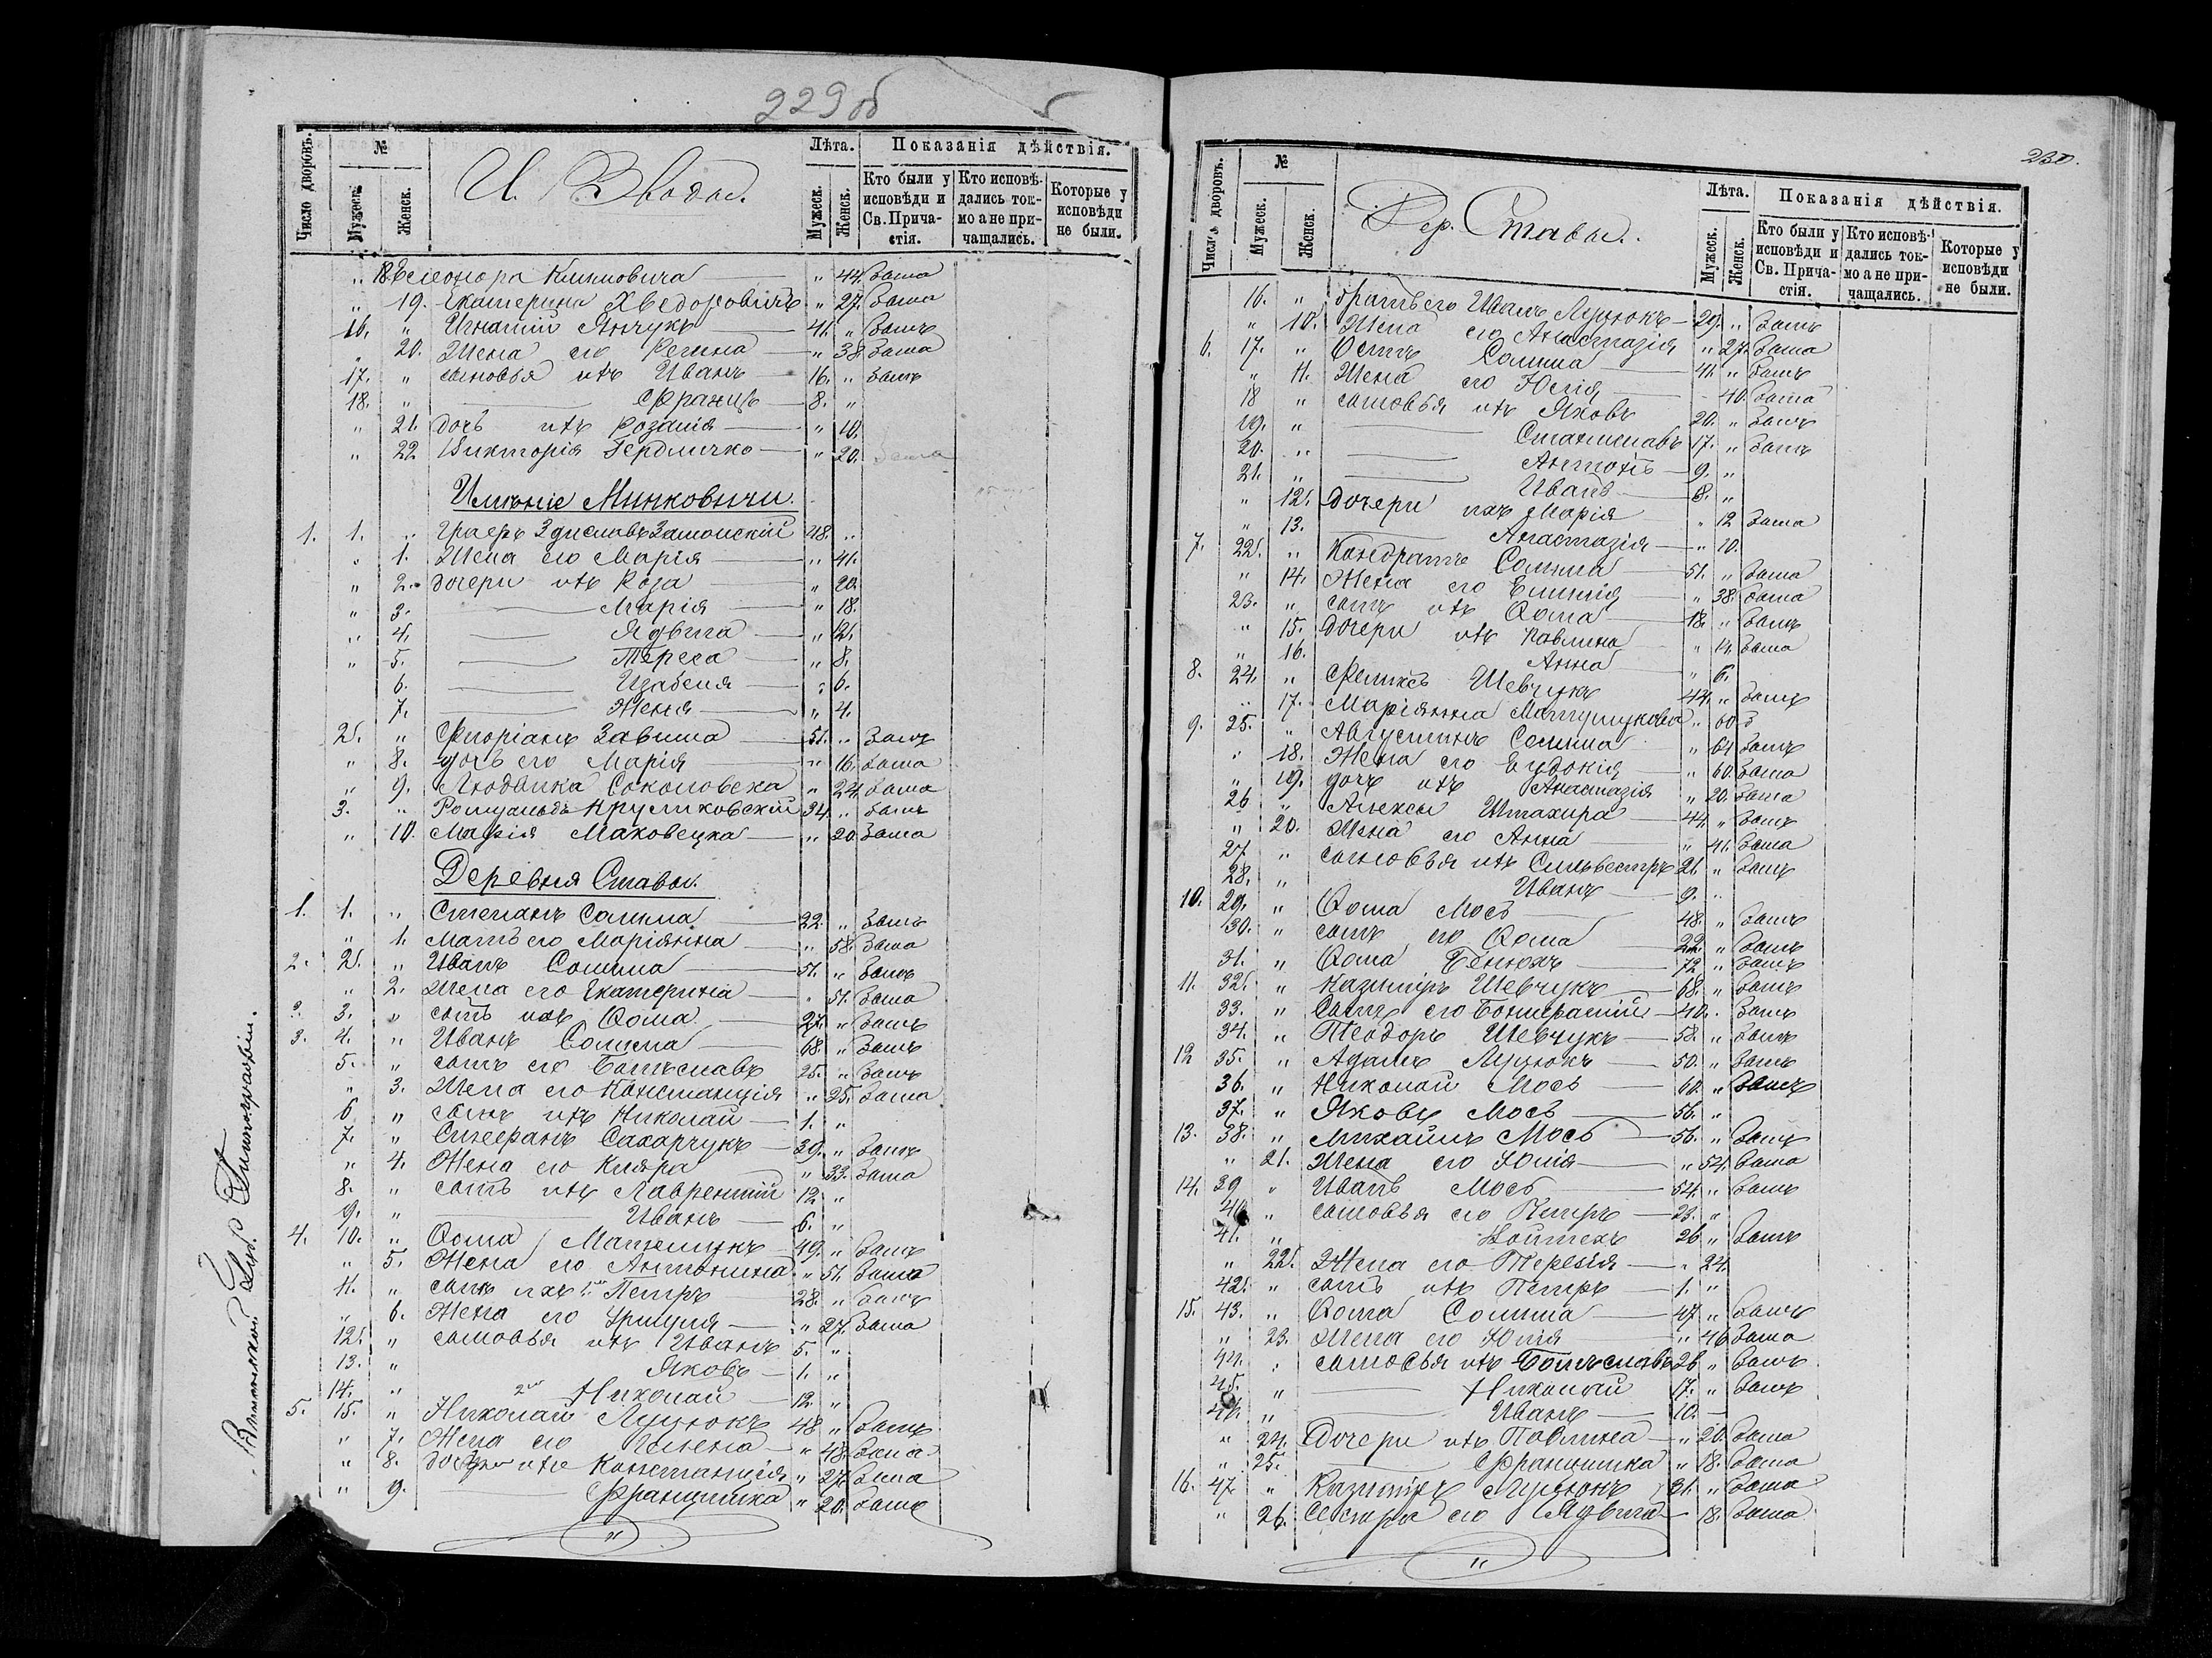 229 об
Число дворовъ.
№
Лѣта.
Показанія дѣйствія.
Мужеск.
Женск.
И. Зводы.
Мужеск.
Женск.
Кто были у исповѣди и Св. Прича-стія.
Кто исповѣ-дались ток-мо а не при-чащались.
Которые у исповѣди не были.
„ 18. Элеонора Климовича „ 44. Была
„ 19. Екатерина Хведоровичъ „ 27. Была
16. „ Игнатій Янчукъ 41. „ Былъ
„ 20. Жена его Регина „ 38. Была
17. „ сыновья ихъ Иванъ 16. „ Былъ
18. „ Францъ 8. „
„ 21. дочь ихъ Розалія „ 10.
„ 22 Викторія Гердличко „ 20. Была
Имѣніе Минковичи.
1. 1. „ Графъ Здиславъ Замойскій 48. „
„ 1. Жена его Марія „ 41.
„ 2. дочери ихъ Роза „ 20.
„ 3. Марія „ 18.
„ 4. Ядвига „ 12.
„ 5. Тереса „ 8.
6. Изабеля „ 6.
7. Женя „ 4.
2. „ Флоріанъ Завиша 51. „ Былъ
„ 8. дочь его Марія „ 16. Была
„ 9. Людвика Соколовска „ 24. Была
3. „ Ромуальдъ Круликовскій 34. „ Былъ
„ 10. Марія Маковецка „ 20. Была
Деревня Ставы.
1. 1. „ Степанъ Солима 22. „ Былъ
„ 1. Мать его Маріянна „ 58. Была
2. 2. „ Иванъ Солима 51. „ Былъ
„ 2. Жена его Екатерина „ 51. Была
3. „ сынъ ихъ Ѳома 27. „ Былъ
3. 4. „ Иванъ Солима 68. „ Былъ
5. „ сынъ его Болеславъ 25. „ Былъ
„ 3. Жена его Констанція „ 25. Была
6 „ сынъ ихъ Николай 1. „
7. „ Стефанъ Сахарчукъ 39. „ Былъ
„ 4. Жена его Кляра „ 33. Была
8. „ сынъ ихъ Лаврентій 12. „
9. „ Иванъ 6. „
4. 10. „ Ѳома 49. „ Былъ
„ 5. Жена его Антонина „ 51. Была
11. „ сынъ ихъ 1ый Петръ 28. „ Былъ
„ 6. Жена его Уршуля „ 27. Была
12. „ сыновья ихъ Иванъ 5. „
13. „ Яковъ 1. „
14. „ 2ой Николай 12. „
5. 15. „ Николай Луцюкъ 48 „ Былъ
„ 7. Жена его „ 48. Была
„ 8. дочери ихъ Констанція „ 27. Была
„ 9. Францишка „ 20. Былъ
Виленской Губ. Типографіи.
230.
Число дворовъ.
№
Лѣта.
Показанія дѣйствія.
Мужеск.
Женск.
Дер. Ставы.
Мужеск.
Женск.
Кто были у исповѣди и Св. Прича-стія.
Кто исповѣ-дались ток-мо а не при-чащались.
Которые у исповѣди не были.
16. „ братъ его Иванъ Луцюкъ 29. „ Былъ
„ 10. Жена его Анастазія „ 27. Была
6. 17. „ Солима 41. „ Былъ
„ 11. Жена его Юлія 40. Была
18 „ сыновья ихъ Яковъ 20. „ Былъ
19. „ Станиславъ 17. „ Былъ
20. „ Антонъ 9. „
21. „ Иванъ 8. „
„ 12. дочери ихъ Марія „ 12 Была
„ 13. Анастазія „ 10.
7. 22. „ Кондратъ Солима 51. „ Была
„ 14. Жена его Емилія „ 38. Была
23. „ сынъ ихъ Ѳома 18. „ Былъ
„ 15. Дочери ихъ Павлина „ 14. Была
„ 16. Анна „ 6.
8. 24. „ Феликсъ Шевчукъ 44. „ Былъ
„ 17. Маріянна „ 60.
9. 25. „ Августинъ Солима „ 61 Былъ
„ 18. Жена его Евдокія „ 60. Была
„ 19. дочь ихъ Анастазія „ 20. Была
26 „ Алексы Штахира 44. „ Былъ
„ 20. Жена его Анна „ 41. Была
27 „ сыновья ихъ Сильвестръ 21. „ Былъ
28. „ Иванъ 9. „
10. 29. „ Ѳома Мось 48. „ Былъ
30. „ сынъ его Ѳома 22. „ Былъ
31. „ Ѳома Бенюхъ 72 „ Былъ
11. 32. „ Казиміръ Шевчукъ 68. „ Былъ
33. „ Сынъ его 40. „ Былъ
34. „ Теодоръ Шевчукъ 58. „ Былъ
12 35. „ Адамъ Луцюкъ 50. „ Былъ
36. „ Николай Мось 60. „ Былъ
37. „ Яковъ Мось 56. „
13. 38. „ Михаилъ Мось 56. „ Былъ
„ 21. Жена его Юлія „ 54. Была
14. 39 „ Иванъ Мось 54. „ Былъ
40 „ сыновья его Петръ 23. „
41. „ Войтехъ 26 „ Былъ
„ 22. Жена его Терезія „ 24.
42. „ сынъ ихъ Петръ 1. „
15. 43. „ Ѳома Солима 47 „ Былъ
„ 23. Жена его Юлія „ 46 Была
44. „ сыновья ихъ Болеславъ 26 „ Былъ
45. „ Николай 17. „ Былъ
46. „ Иванъ 10.
„ 24. Дочери ихъ Павлина „ 20. Была
„ 25. Францишка „ 18. Была
16. 47. „ Казиміръ Луцюкъ 31. „ Была
„ 26. Сестра его Ядвига 18. Была